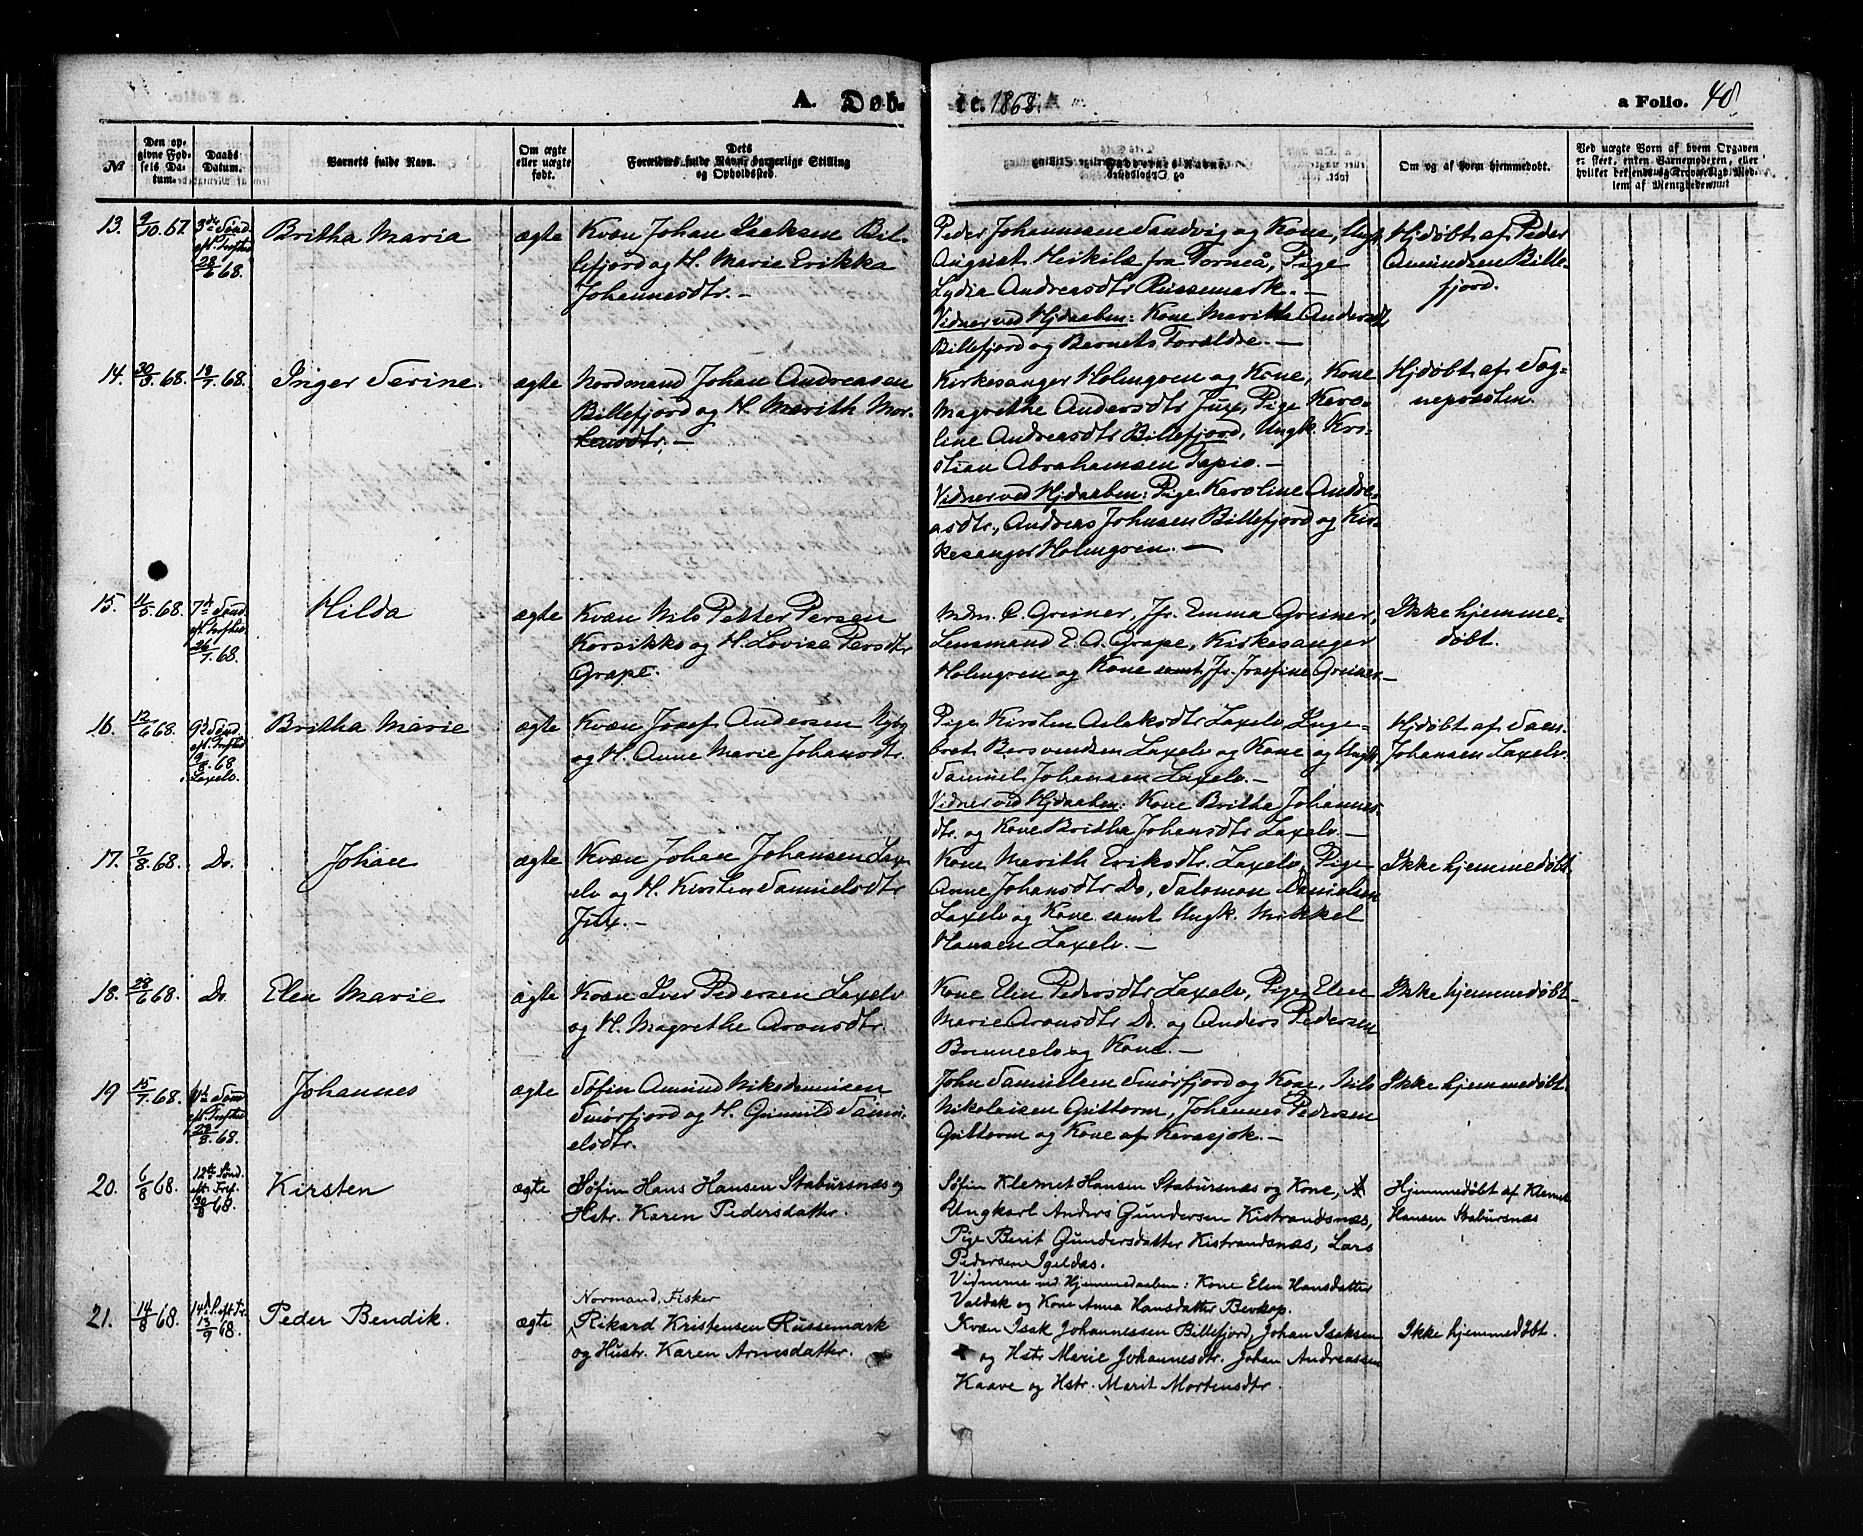 A. Døb-
te. 1868.
a Folio. 40
No
Den op-
givne Fød-
sels Da-
tum.
Daabs
Datum.
Barnets fulde Navn.
Om ægte
eller uægte
født.
Dets
Forældres fulde Navn, borgerlige Stilling
og Opholdssted.
Faddernes Navne
og Opholdssted.
Om og af hvem hjemmedøbt.
Ved uægte Born af hvem Opgaven
er skeet, enten Barnemoderen, eller
hvilket bekjendt og troværdigt Med-
lem af Menigheden.
13.
9/10.67.
3de Sønd.
eft. Trefold.
28/6 68.
Britha Maria
ægte
Kvæn Johan Isaksen Bil-
lefjord og H. Marie Erikka
Johannesdtr. -
Peder Johannesen Sandvig og Kone, Ungk.
August Heikilæ fra Torneå, Pige
Lydia Andreasdtr Russemark. -
Vidner ved Hjdaaben: Kone Maritha Andersdtr
Billefjord og Barnets Forældre. -
Hjdøbt af Peder
Amundsen Bille-
fjord.
14.
30/3 68.
19/7. 68.
Inger Serine.
ægte
Nordmand Johan Andreasen
Billefjord og H. Marith Mor-
tensdtr. -
Kirkesanger Holmgren og Kone, Kone
Magrethe Andersdtr Jux, Pige Karo-
line Andreasdtr Billefjord, Ungk. Kri-
stian Abrahamsen Tapio. -
Vidner ved Hjdaaben: Pige Karoline Andre-
asdtr., Andreas Johnsen Billefjord og Kir-
kesanger Holmgren. -
Hjdøbt af Sog-
nepræsten.
15.
11/5. 68.
7de Sønd.
eft. Trefhed.
26/7. 68.
Hilda
ægte
Kvæn Nils Petter Persen
Korsikko og H. Lovise Persdtr
Grape.
Mdm. C. Greiner, Jfr. Emma Greiner,
Lensmand E. A. Grape, Kirkesanger
Holmgren og Kone samt Jfr. Josefine Greiner. -
Ikke hjemme-
døbt.
16.
12/6 68.
9de Sønd.
eft. Trefold
9/8. 68
i Laxelv.
Britha Marie
ægte
Kvæn Josef Andersen Nyby
og H. Anne Marie Johansdtr.
Pige Kirsten Aslaksdtr Laxelv, Inge-
bret Bersvendsen Laxelv og Kone og Ungk.
Samuel Johansen Laxelv. -
Vidner ved Hjdaaben: Kone Britha Johannes-
dtr. og Kone Britha Johansdtr Laxelv. -
Hjdøbt af Sam.
Johansen Laxelv.
17.
2/8. 68.
Do.
Johan
ægte
Kvæn Johan Johansen Lax-
elv og H. Kirsten Samuelsdtr
Jux. -
Kone Marith Eriksdtr. Laxelv, Pige
Anne Johansdtr Do, Salomon Danielsen
Laxelv og Kone samt Ungk. Mikkel
Hansen Laxelv. -
Ikke hjemmedøbt.
18.
28/6 68.
Do.
Elen Marie
ægte
Kvæn Iver Pedersen Laxelv
og H. Magrethe Aronsdtr.
Kone Elen Pedersdtr Laxelv, Pige Elen
Marie Aronsdtr Do. og Anders Pedersen
Brenneelv og Kone. -
Ikke hjemmedøbt.
19
15/7. 68.
eft. Trefold
23/8. 68.
Johannes
ægte
Søfin Amund Nikodemusen
Smørfjord og H. Gunnild Samu-
elsdtr.
John Samuelsen Smørfjord og Kone, Nils
Nikolaisen Guttorm, Johannes Pedersen
Guttorm og Kone af Karasjok. -
Ikke hjemmedøbt.
20.
6/8 68.
12te Sønd.
eft. Tref.
30/8 68.
Kirsten
ægte
Søfin Hans Hansen Stabursnæs og
Hstr. Karen Pedersdatter.
Søfin Klemet Hansen Stabursnæs og Kone,
Ungkarl Anders Gundersen Kistrandsnæs,
Pige Berit Gundersdatter Kistrandsnæs, Lars
Pedersen Igeldas.
Vidnerne ved Hjemmedaaben: Kone Elen Hansdatter
Valdak og Kone Anna Hansdatter Bevkop.
Hjemmedøbt af Klemet
Hansen Stabursnæs
21.
14/8 68.
14d S. eft. Tr.
13/9 68.
Peder Bendik.
ægte
Normand, Fisker
Rikard Kristensen Russemark
og Hustr. Karen Arnesdatter.
Kvæn Isak Johannessen Billefjord, Johan Isaksen
og Hstr Marie Johannesdtr. Johan Andreassen
Kaave og Hstr. Marit Mortensdtr.
Ikke hjemmedøbt.